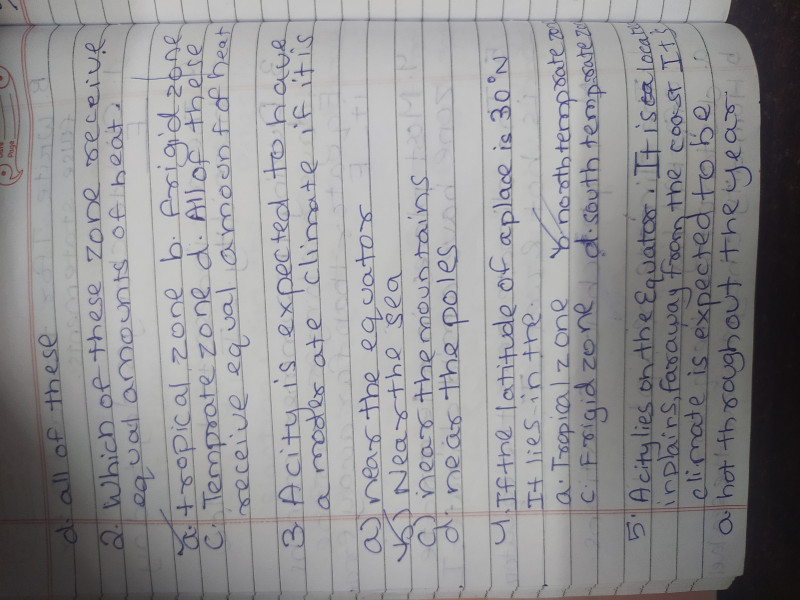 d. all of these
2. Which of these zone receive
equal amounts of heat.
a. tropical zone b. frigid zone
c. Temprate zone d. All of these
receive equal amount of heat
3. A city is expected to have
a moderate climate if it is
a) near the equator
b) Near the sea
c) near the mountains
d. near the poles
4. If the latitude of a place is 30°N
It lies in the.
a. Tropical zone b. north temprate
c. Frigid zone d. south temprate
5. A city lies on the Equator. It is
in plains, faraway from the coast Its
climate is expected to be
a. hot throughout the year